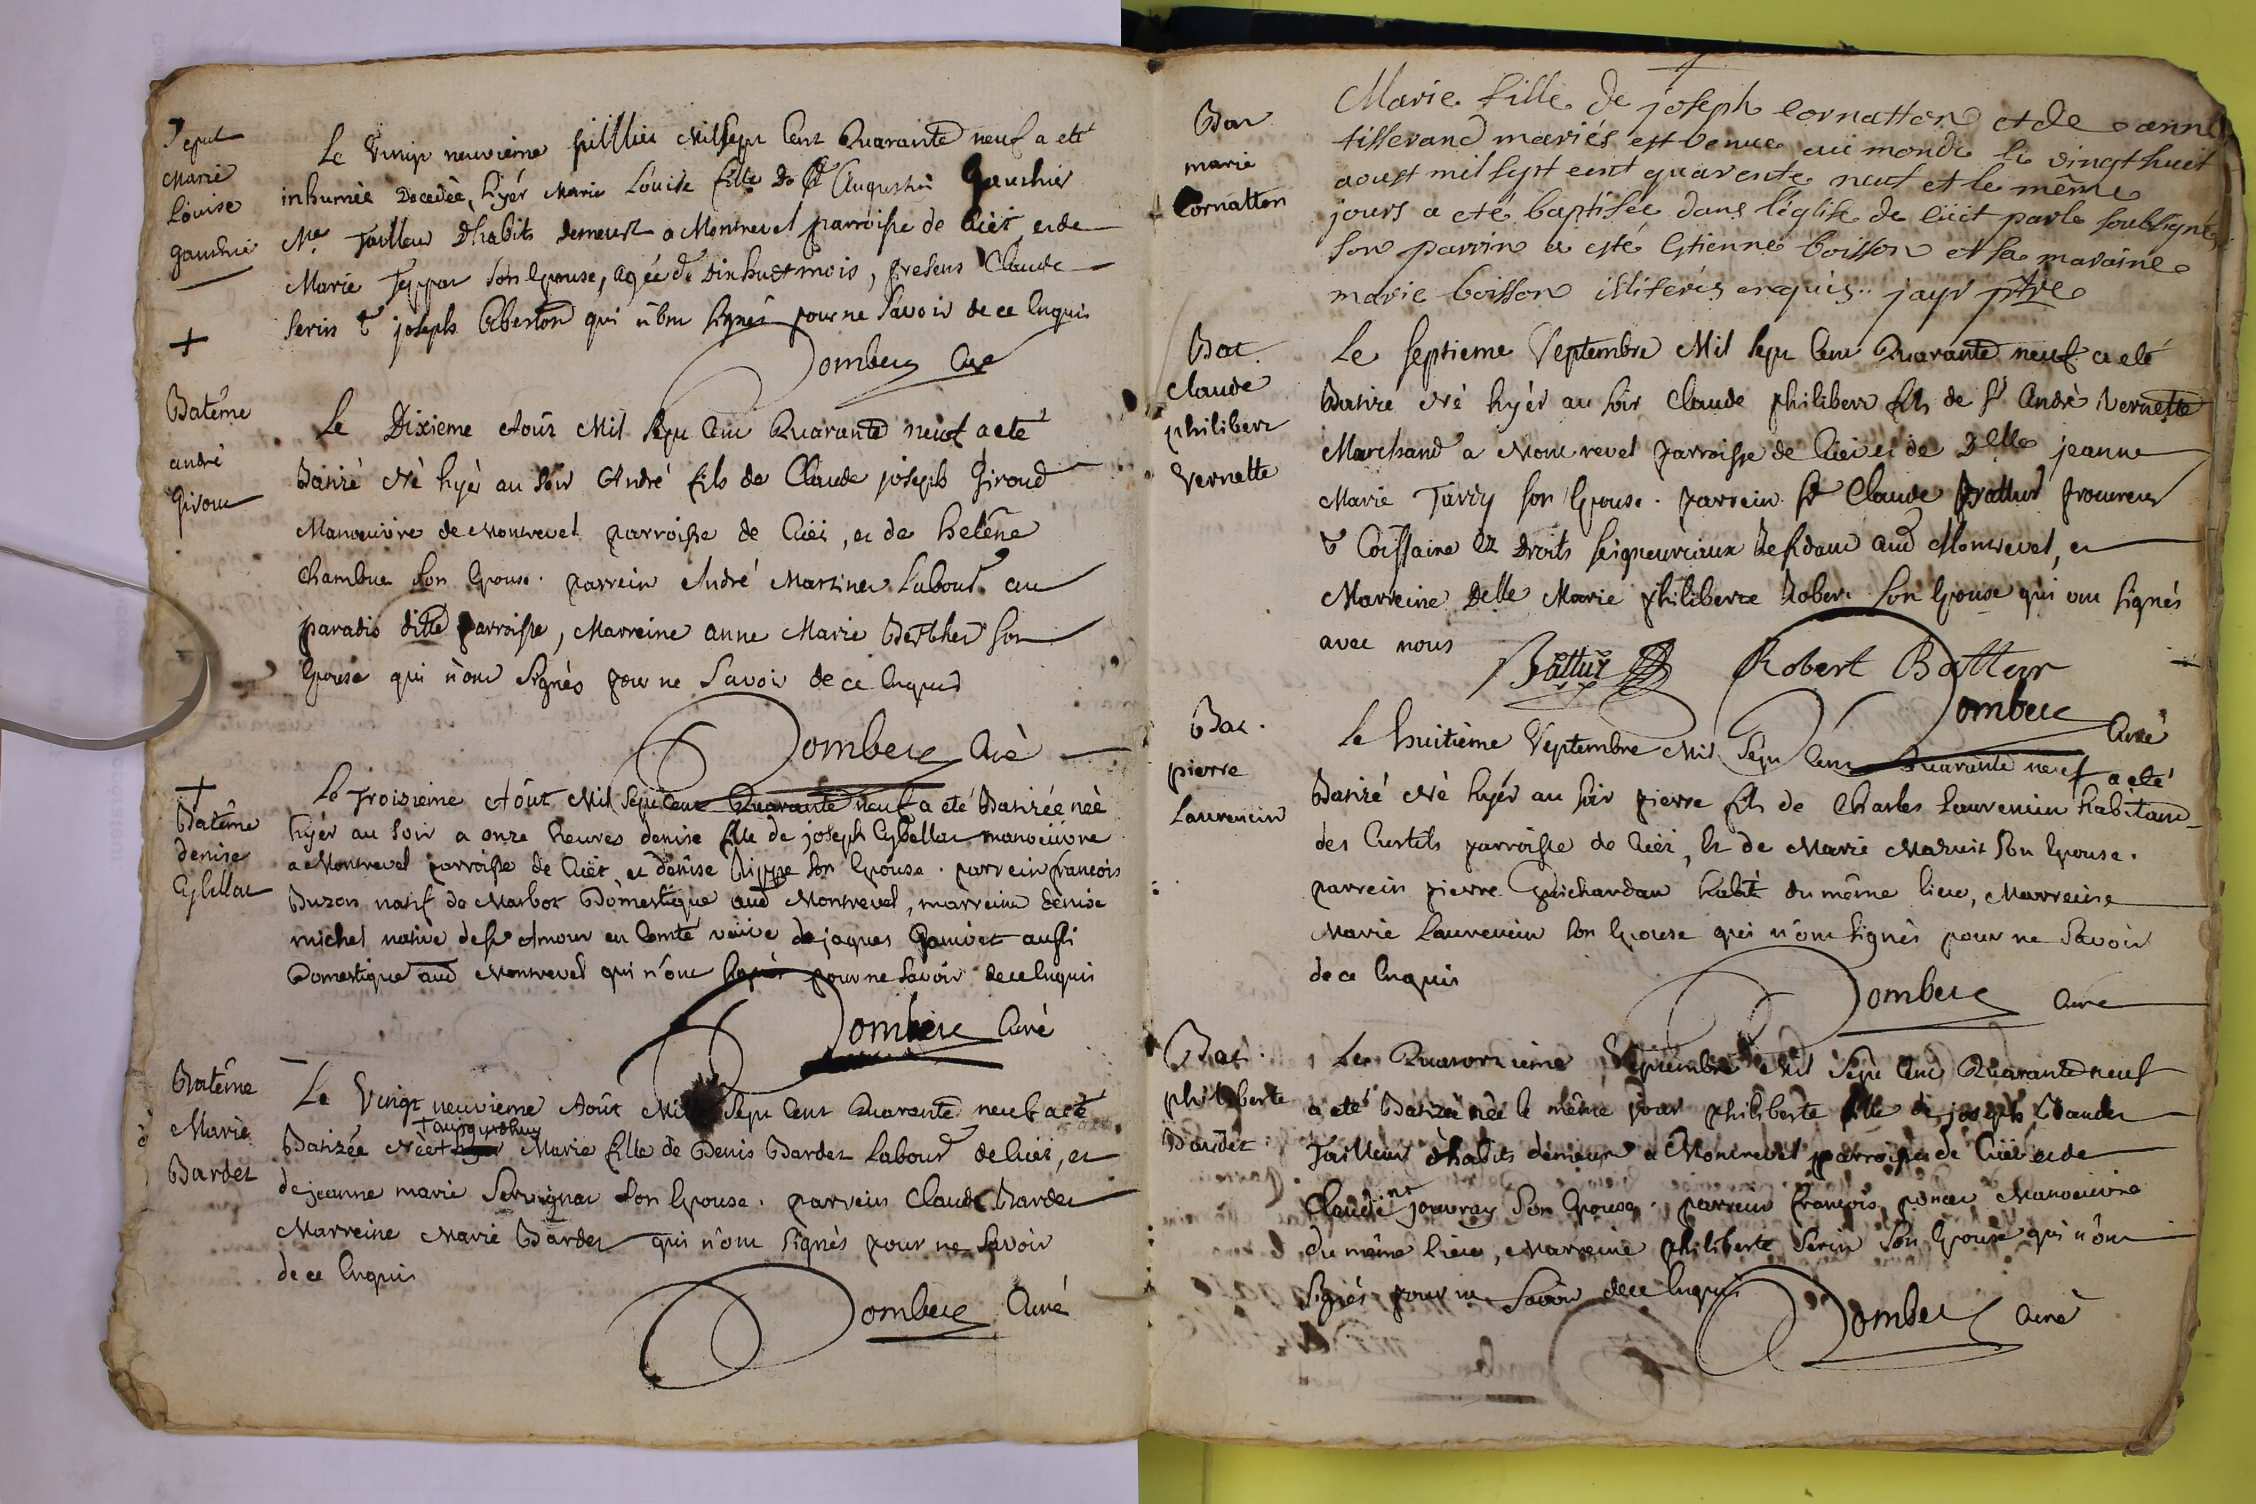 Sepul
Marie
Louise
gauthié
Le Vingt neuvieme juillliet Mil Sept Cent Quarante neuf a eté
inhumée Decedée hyér Marie Louise fille de Sr Augustin Gauthier
Me Tailleur D'habits demeurt a Montrevel parroisse de Cüet, et de
Marie son Epouse, agée de Dixhuet mois, presens Claude
Serin & joseph qui n'ont signés pour ne Savoir de ce Enquis
Dombey Curé
Batême
andré
Girou
Le Dixieme Aoûst Mil Sept Cent Quarante neuf a eté
Batizé Né hyér au Soir André fils de Claude joseph Giroud
Manoeuvre de Montrevel parroisse de Cüet, et de heléne
chambu son Epouse. parrein André Martinet Labour au
paradis ditte parroisse, Marreine anne Marie Berthet son
Epouse qui n'ont Signés pour ne Savoir de ce Enquis
Dombey Curé
Batême
denise
Le Troizieme Août Mil Sept Cent Quarante neuf a eté Batizée née
hyér au Soir a onze heures denise fille de joseph manoeuvre
a Montrevel parroisse de Cüet et denise son Epouse. parrein françois
Buzon natif de Marboz Domestique aud Montrevel, marreine denise
michel native de St Amour en Comté veüve de jaques Gauvet aussi
Domestique aud Montrevel qui n'ont signés pour ne Savoir de ce Enquis
Dombey Curé
Batême
Marie
Bardet
Le Vingt neuvieme Août Mil Sept Cent Quarante neuf a eté
aujourdhuy
Batizée Née Marie fille de Denis Bardet Labour de Cüet, et
de jeanne marie Servignat son Epouse. parrein Claude Bardet
Marreine Marie Bardet qui n'ont Signés pour ne Savoir
de ce Enquis
Dombey Curé
Bat
marie
Cornatton
Marie fille de joseph cornatton et de anne
tisserand mariés est venue au monde le vingt huit
aoust mil sept cent quarente neuf et le même
jours a eté baptisée dans l'église de cüet par le soubsigné
son parrin a esté Estienne boisson et sa maraine
marie boisson illiterés enquis.. jayr ptre
Bat.
Claude
philibert
Vernette
Le Septieme Septembre Mil Sept Cent Quarante neuf a eté
Batizé Né hyér au soir Claude philibert fils de Sr André Vernette
Marchand a Montrevel parroisse de Cüet et de Delle jeanne
Marie son Epouse. parrein Sr Claude Battur procureur
& Coissaire Ez Droits Seigneuriaux Residant aud Montrevel, et
Marreine Delle Marie philiberte Robert Son Epouse qui ont signés
avec nous
Battur Robert Battur
Dombey Curé
Bat.
pierre
Laurencin
Le huitième Septembre Mil Sept Cent Quarante neuf a eté
Batizé Né hyér au soir pierre fils de Charles Laurencin habitant
des Curtils parroisse de Cüet, Et de Marie son Epouse.
parrein pierre Guichardan habit du même lieu, Marreine
Marie Laurencin son Epouse qui n'ont signés pour ne Savoir
de ce Enquis
Dombey Curé
Bat.
philiberte
Baudet
Le Quatorzieme Septembre Mil Sept Cent Quarante neuf
a eté Batizée née le même jour philiberte fille de joseph Baudet
Tailleur d'habits demeur a Montrevel parroisse de Cüet et de
Claudine jouvray Son Epouse. parrein françois ponat Manoeuvre
du même lieu, Marreine philiberte Serin Son Epouse qui n'ont
Signés pour ne Savoir de ce Enquis
Dombey Curé